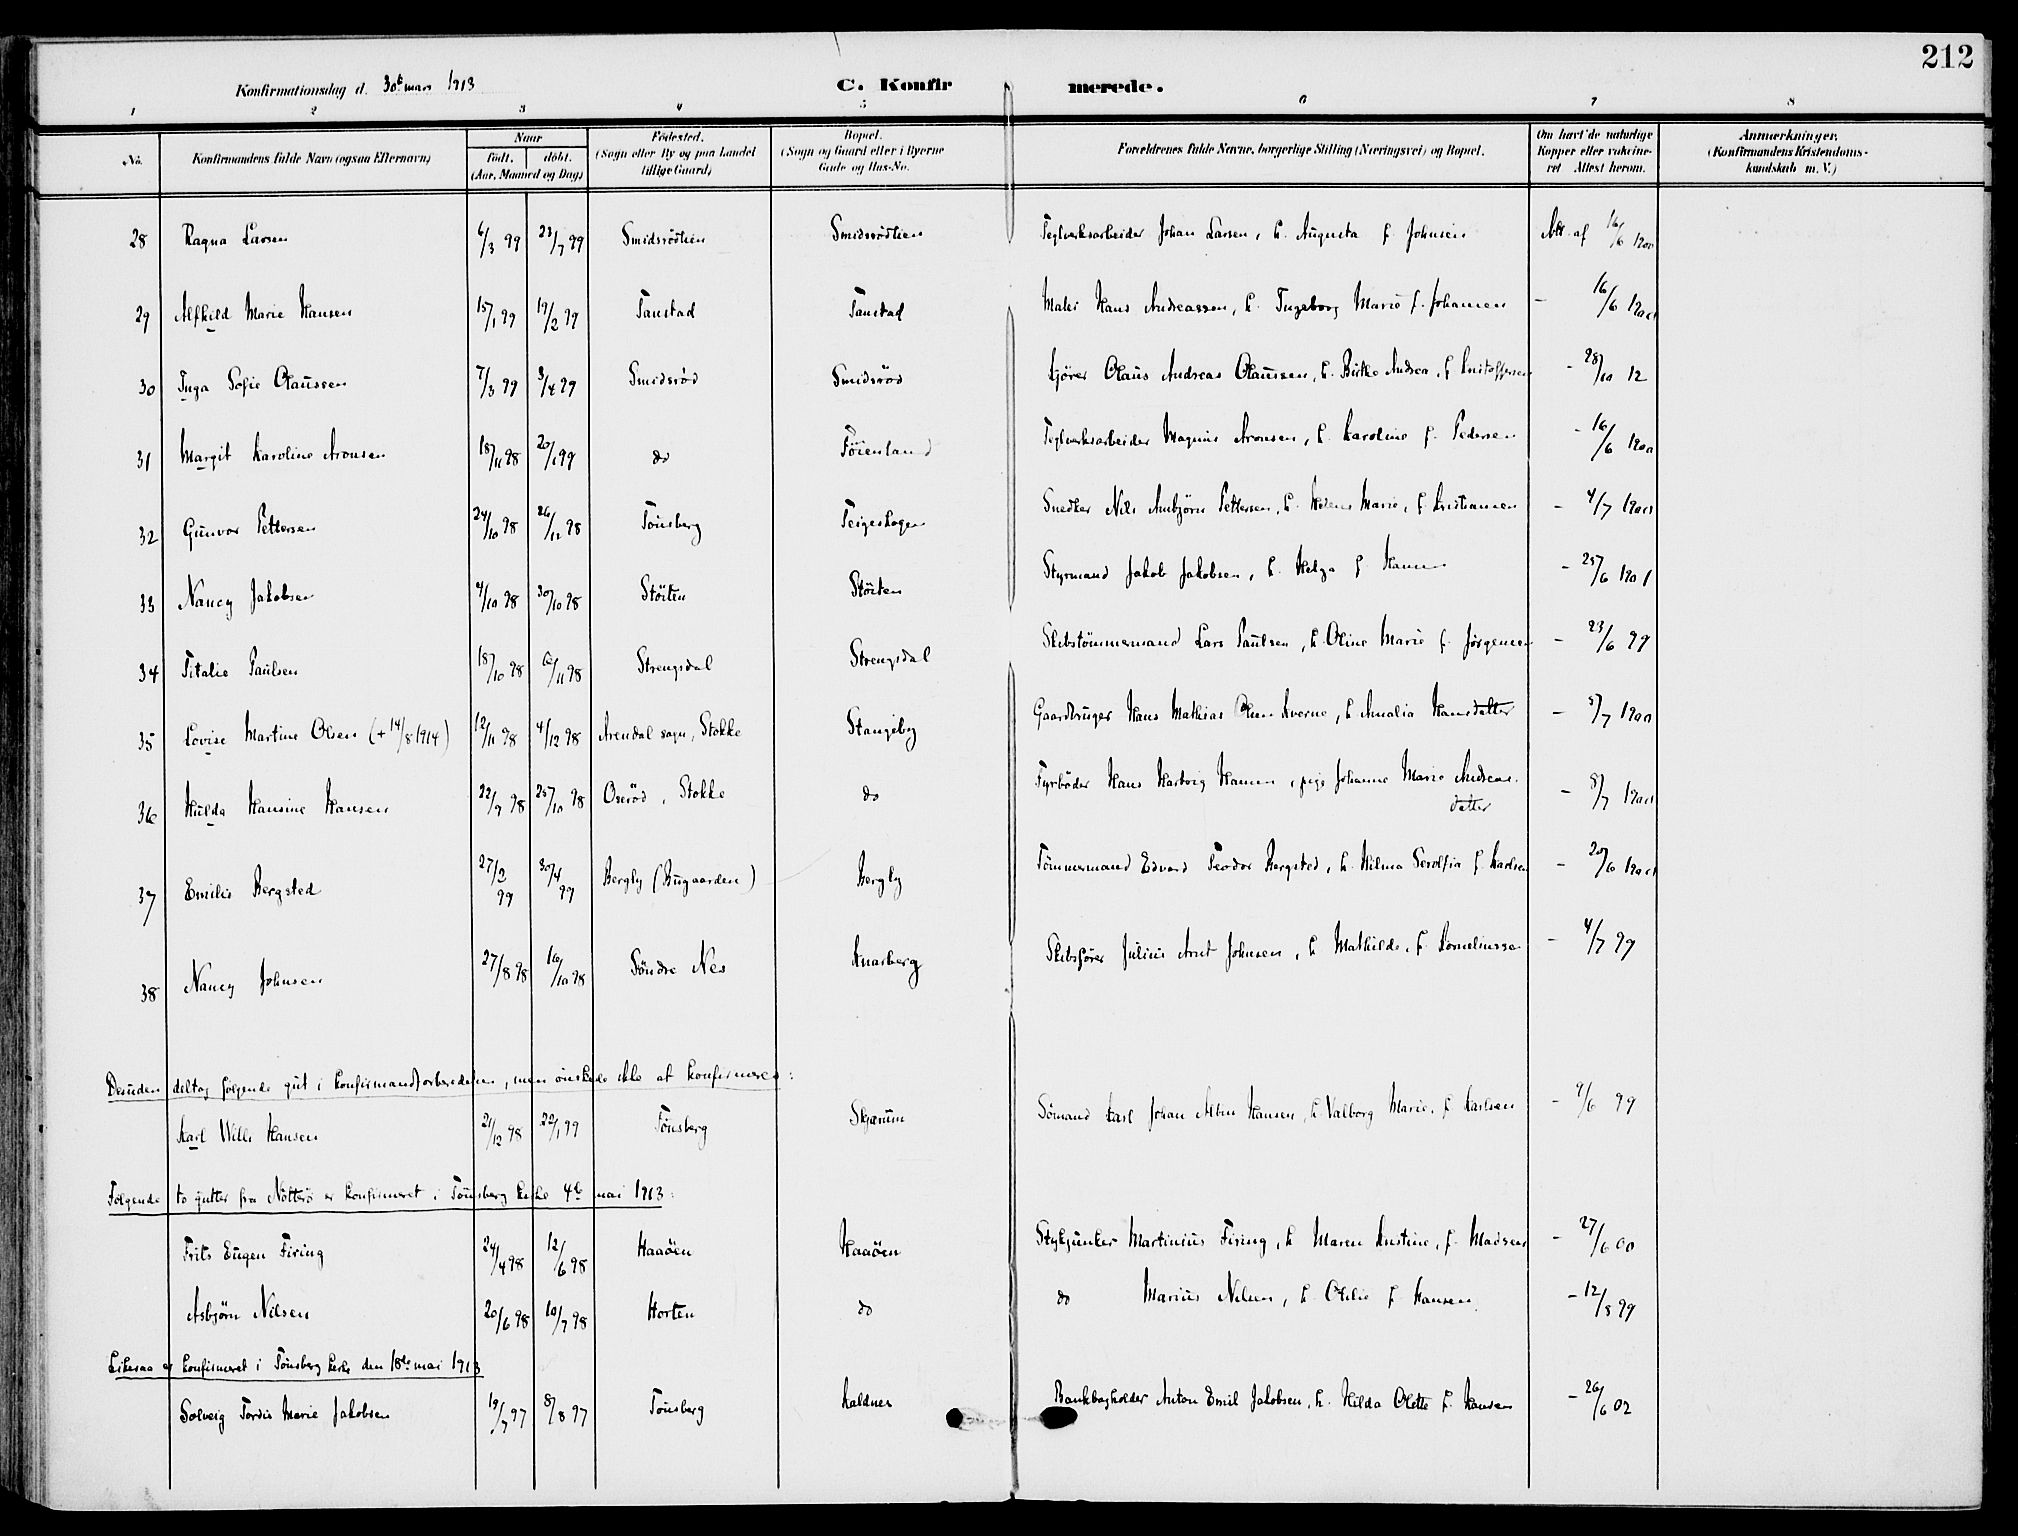 212
Konfirmationsdag d. 30te mars 1913
C. Konfirmerede.
1 2 3 4 5 6 7 8
No.
Konfirmandens fulde Navn (ogsaa Efternavn)
Naar
født. døbt.
(Aar, Maaned og Dag)
Fødested.
(Sogn eller By og paa Landet
tillige Gaard)
Bopæl.
(Sogn og Gaard eller i Byerne
Gade og Hus-No.
Forældrenes fulde Navne, borgerlige Stilling (Næringsvei) og Bopæl.
Om havt de naturlige
Kopper eller vakcine-
ret Attest herom.
Anmærkninger.
(Konfirmandens Kristendoms-
kundskab m. V.)
28 Ragna Larsen 6/3 99 23/7 99 Smidsrödtien Smidsrödtien Teglverksarbeider Johan Larsen, h. Augusta f. Johnsen Att. af 16/6 1900
29 Alfhild Marie Hansen 15/1 99 19/2 99 Tanstad Tanstad Maler Hans Andreassen, h. Ingeborg Marie f. Johansen - 16/6 1900
30 Inga Sofie Olaussen 7/3 99 3/4 99 Smidsröd Smidsröd Kjörer Olaus Andreas Olaussen, h. Birthe Andrea, f. Kristoffersen - 28/10 12
31 Margit Karoline Aronsen 18/11 98 20/1 99 do Föienland Teglverksarbeider Magnus Aronsen, h. Karoline f. Pedersen - 16/6 1900
32 Gunvor Pettersen 24/10 98 26/12 98 Tönsberg Teigeskogen Snedker Nils Anbjörn Pettersen, h. Helene Marie, f. Kristiansen - 4/7 1900
33 Nancy Jakobsen 4/10 98 30/10 98 Störten Störten Styrmand Jakob Jakobsen, h. Helga f. Hansen - 25/6 1901
34 Titalie Paulsen 18/10 98 6/11 98 Strengsdal Strengsdal Skibstömmermand Lars Paulsen, h. Oline Marie f. Jörgensen - 23/6 99
35 Lovise Martine Olsen (+ 14/8 1914) 12/11 98 4/12 98 Arendal sogn, Stokke Stangeby Gaardbruger Hans Mathias Olsen Kverne, h. Amalia Hansdatter - 5/7 1900
36 Hulda Hansine Hansen 22/9 98 25/10 98 Oseröd, Stokke do Fyrböder Hans Hartvig Hansen, pige Johanne Marie Andreas-
datter - 5/7 1900
37 Emilie Bergsted 27/2 99 30/4 99 Bergly (Bugaarden) Bergly Tömmermand Edvard Teodor Bergsted, h. Hilma Serolfia f. Karlsen - 20/6 1900
38 Nancy Johnsen 27/8 98 16/10 98 Söndre Nes Knarberg Skibsförer Julius Arnt Johnsen, h. Mathilde, f. Korneliussen - 4/7 99
Desuden deltog fölgende gut i konfirmandforberedelsen, men önskede ikke at konfirmeres:
Karl Willi Hansen 21/12 98 22/1 99 Tönsberg Skjærum Sömand Karl Johan Albin Hansen, h. Valborg Marie, f. Karlsen - 9/6 99
Fölgende to gutter fra Nötterö er konfirmeret i Tönsberg kirke 4de mai 1913:
Frits Eugen Firing 24/4 98 12/6 98 Haaöen Haaöen Stykjunker Martinius Firing, h. Maren Kristine, f. Madsen - 27/6 00
Asbjörn Nilsen 20/6 98 10/7 98 Horten do do Marius Nilsen, h. Otilie f. Hansen - 12/8 99
Likesaa er konfirmeret i Tönsberg kirke den 18de mai 1913
Solveig Tordis Marie Jakobsen 19/7 97 8/8 97 Tönsberg Kaldnes Bankbogholder Anton Emil Jakobsen, h. Hilda Olette f. Hansen - 26/6 02